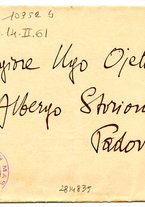 10352 G
14-II-61
Ugo Ojet
Albergo Storion
Padov
2814835